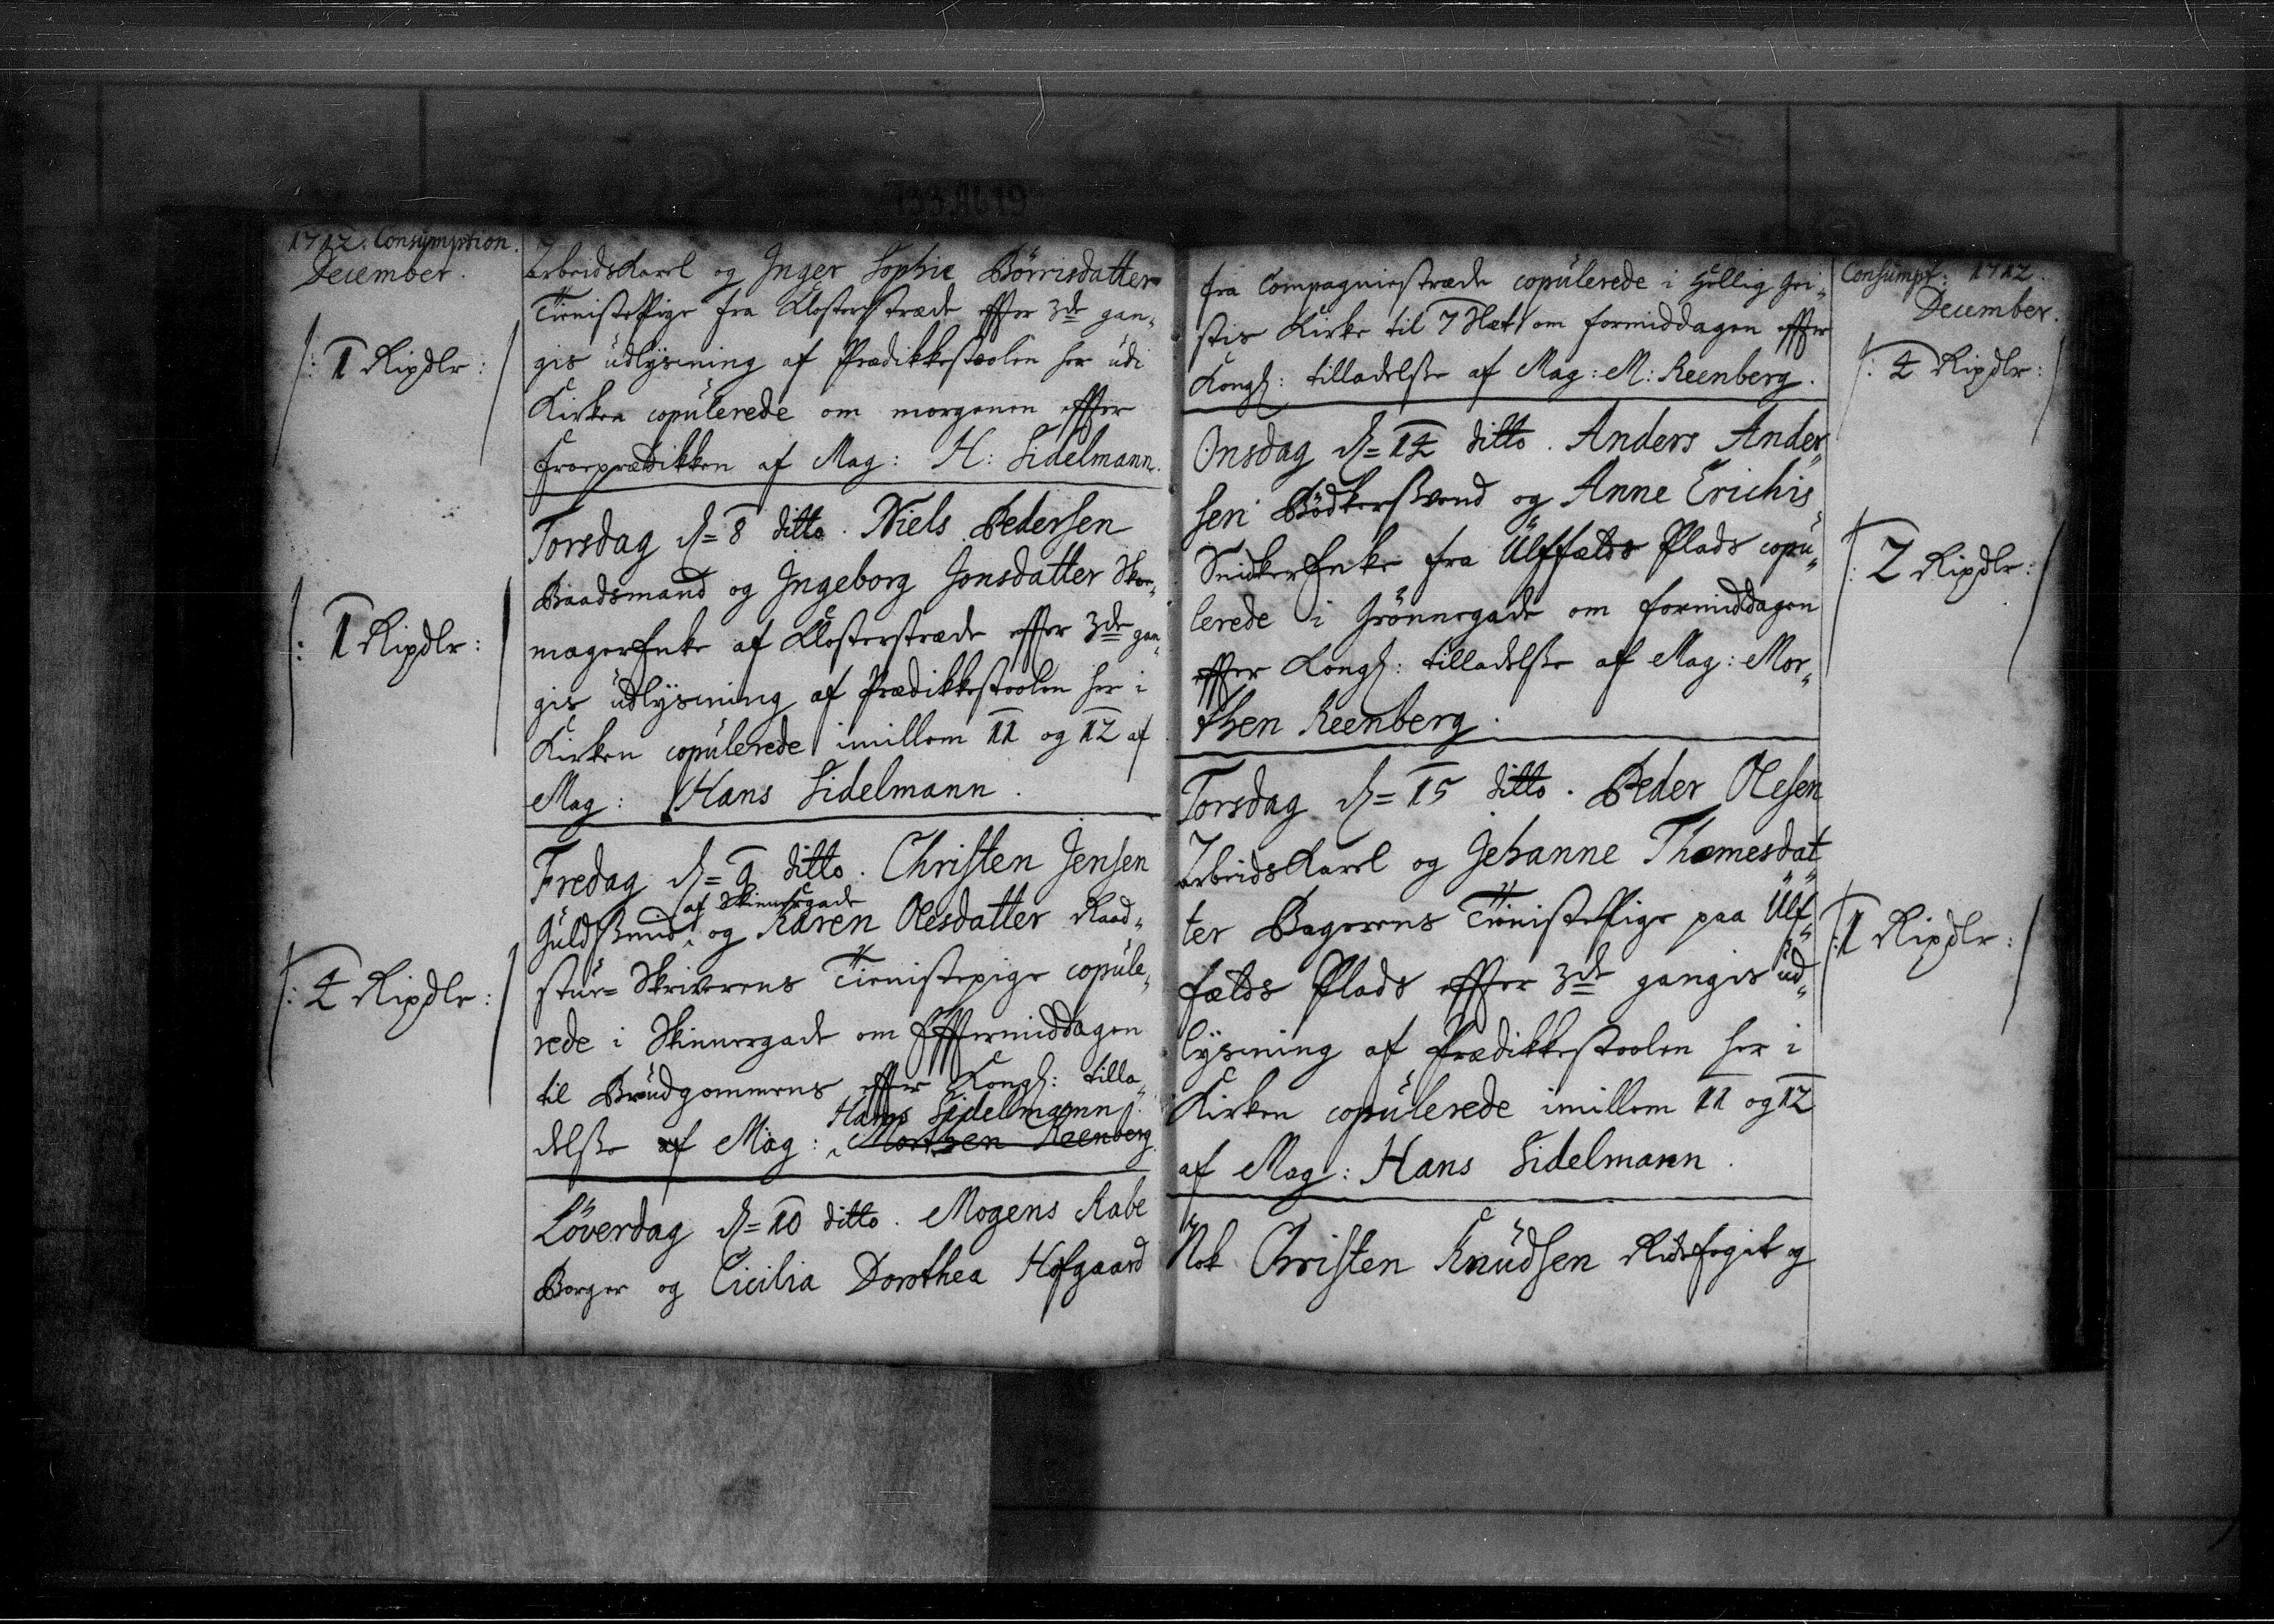 1712. Consumption.
December.
/: 1 Rixdlr: /
/: 1 Rixdlr: /
/: 4 Rixdlr: /
arbeidsKarl og Inger Sophie Börrisdatter
TienistePige fra Klosterstræde effter 3de gan„
gis udlysning af Prædikkestoolen her udi
Kirken copulerede om morgenen effter
froeprædikken af Mag: H: Sidelmann.
Torsdag d= 8 ditto. Niels Pedersen
Baadsmand og Ingeborg Jonsdatter Skoe„
magerEnke af Klosterstræde effter 3de gan„
gis udlysning af Prædikkestoolen her i
Kirken copulerede imillem 11 og 12 af
Mag: Hans Sidelmann.
Fredag d= 9 ditto. Christen Jensen
af Skinnergade
Guldsmid og Karen Olesdatter Raad„
stue=Skriverens Tienistepige copule„
rede i Skinnergade om Efftermiddagen
til Brudgommens effter Kongl: tilla„
Hans Sidelmann
delsse af Mag: Morthen Reenberg
Löverdag d= 10 ditto. Mogens Rabe
Borger og Cicilia Dorothea Hofgaard
fra Compagniestræde copulerede i Hellig Gei„
stis Kirke til 7 Slæt om formiddagen effter
Kongl: tilladelsse af Mag: M: Reenberg.
Onsdag d= 14 ditto. Anders Ander„
sen Bödkersvend og Anne Erichis
SnidkerEnke fra Ulffælds Plads copu„
lerede i Grönnegade om formiddagen
effter Kongl: tilladelsse af Mag: Mor„
then Reenberg.
Torsdag d= 15 ditto. Peder Olesen
ArbeidsKarl og Jehanne Thomesdat„
ter Bagerens TienistePige paa Ulf„
fælds Plads effter 3de gangis ud„
lysning af Prædikkestoolen her i
Kirken copulerede imillem 11 og 12
af Mag: Hans Sidelmann.
Nok Christen Knudsen Ridefogit og
Consumpt: 1712.
December.
/: 4 Rixdlr: /
/: 2 Rixdlr: /
/: 1 Rixdlr: /